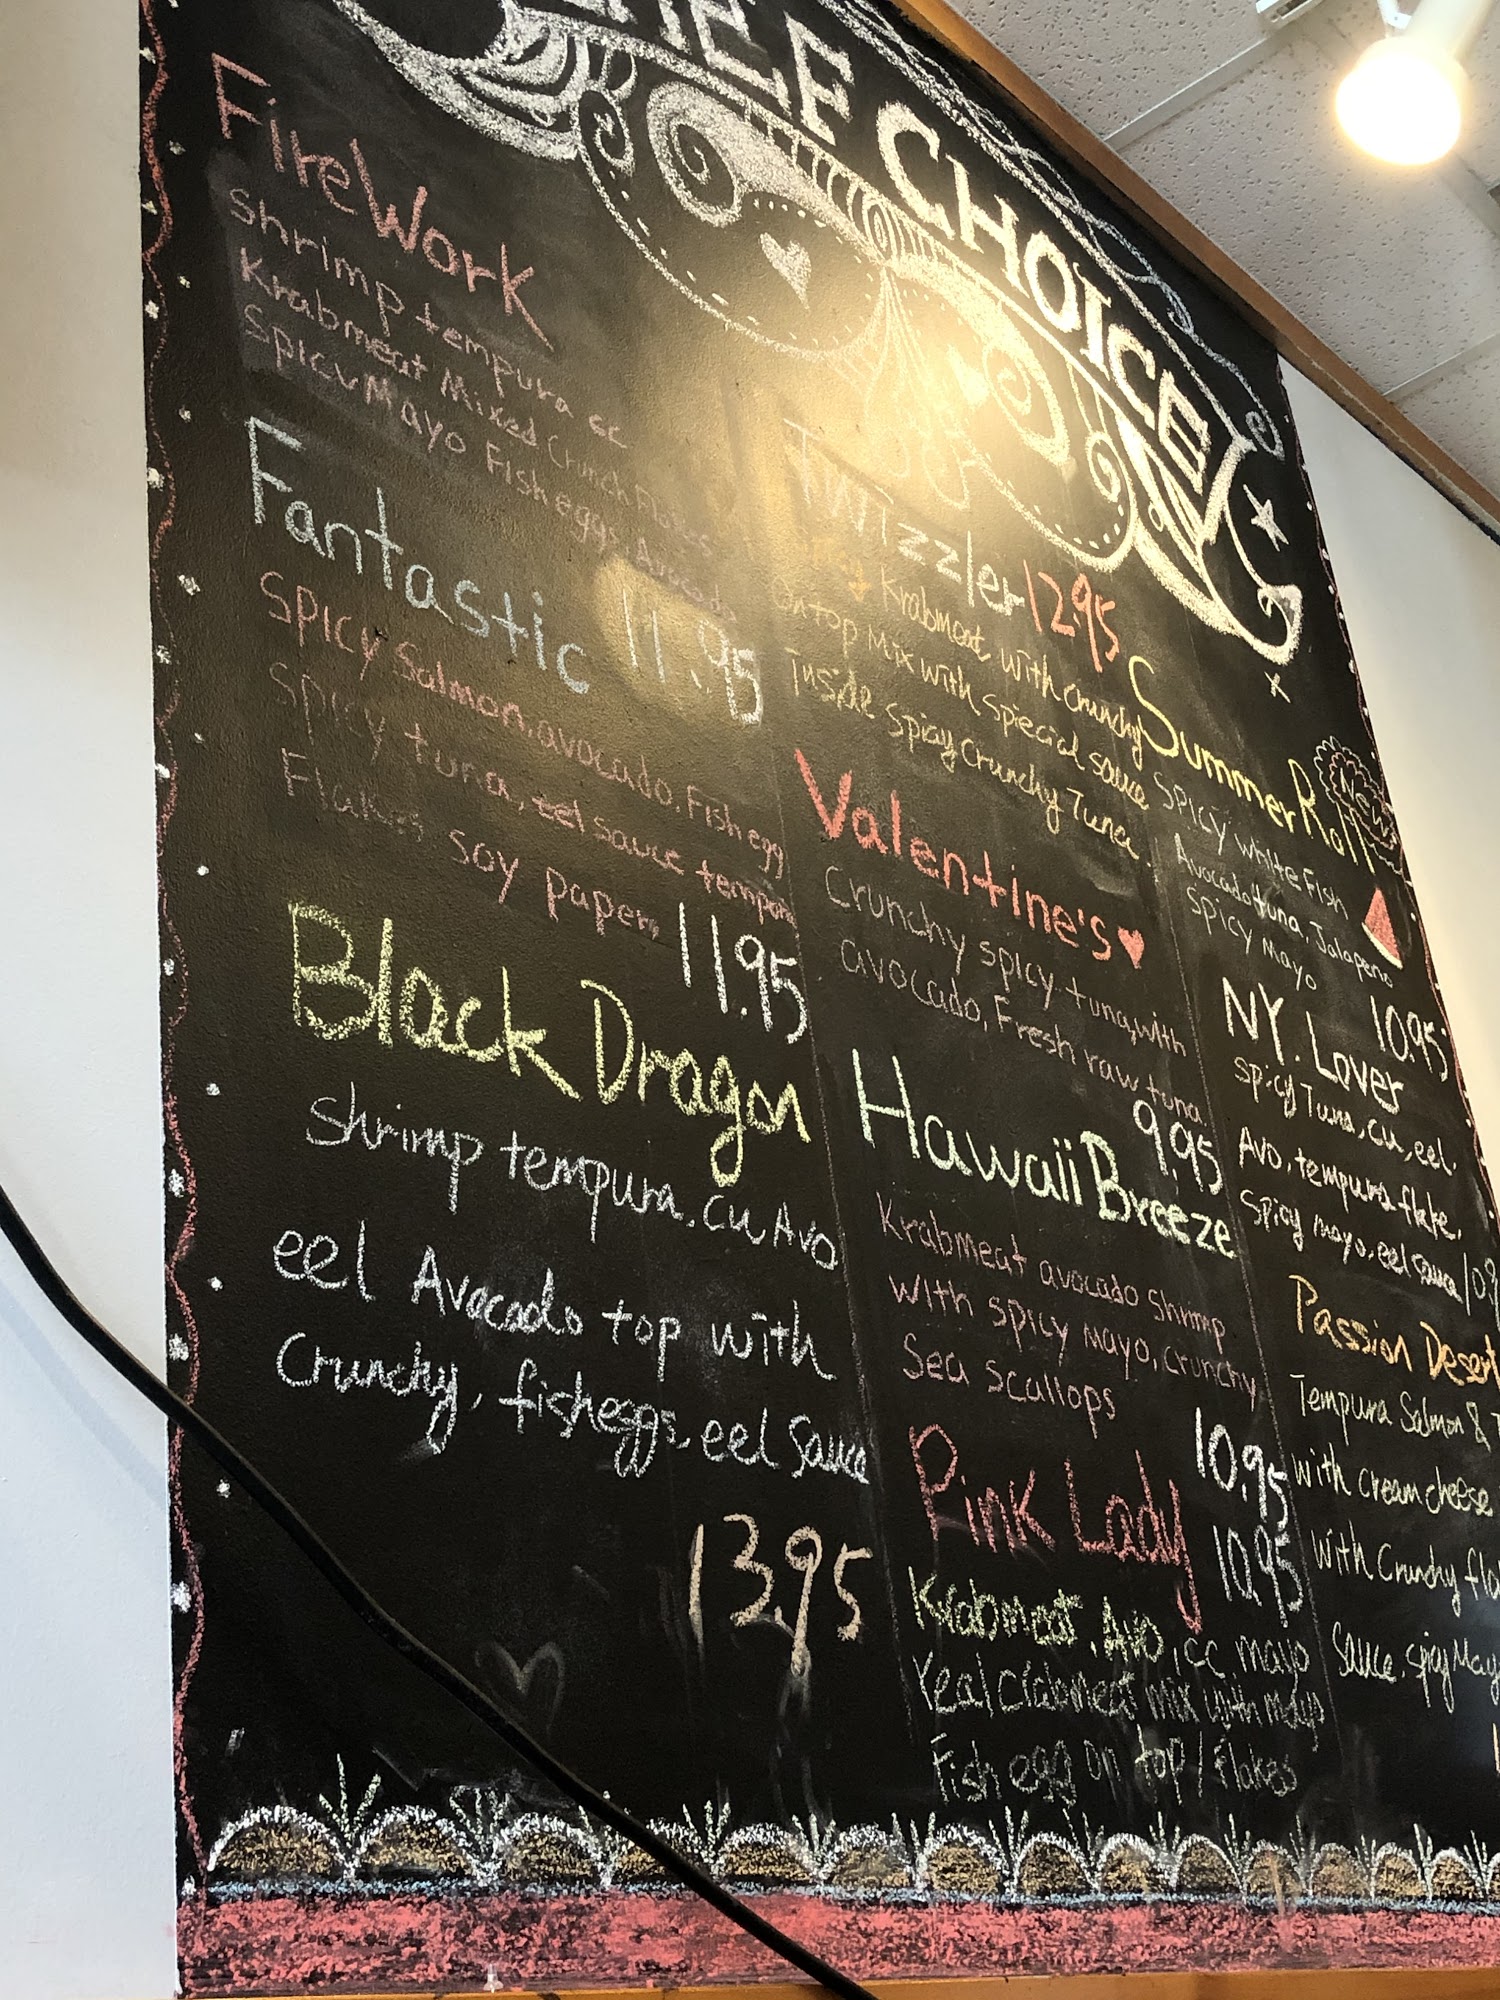 CHOICE
FireWork
Shrimp tempura cc
Krabmeat Mixed Crunch Flakes
Spicy Mayo Fish eggs Avocado
11.95
Fantastic
Spicy Salmon, avocado, Fish egg
Spicy tuna, eel sauce tempura
Flakes, soy paper,
11.95
Black Dragon
Shrimp tempura, cu, Avo
eel Avocado top with
Crunchy, fisheggs, eel sauce
13.95
Twizzler 12.95
Krabmeat with crunchy
on top Mix with special sauce
Inside Spicy Crunchy Tuna.
Valentine's
Crunchy spicy tuna, with
avocado, Fresh raw tuna
9.95
Hawaii Breeze
Krabmeat avocado shrimp
with spicy mayo, crunchy
Sea scallops
10.95
Pink Lady 10.95
Krabmeat, Avo, cc, mayo
Real Crabmeat mix with mayo
Fish egg on top / Flakes
Summer Roll
NEW
Spicy White Fish
Avocado, tuna, Jalapeno
Spicy Mayo
10.95
NY. Lover
Spicy Tuna, cu, eel.
Avo, tempura flake,
Spicy mayo, eel sauce
Passion Desert
Tempura Salmon &
with cream cheese
with Crunchy
Sauce, Spicy